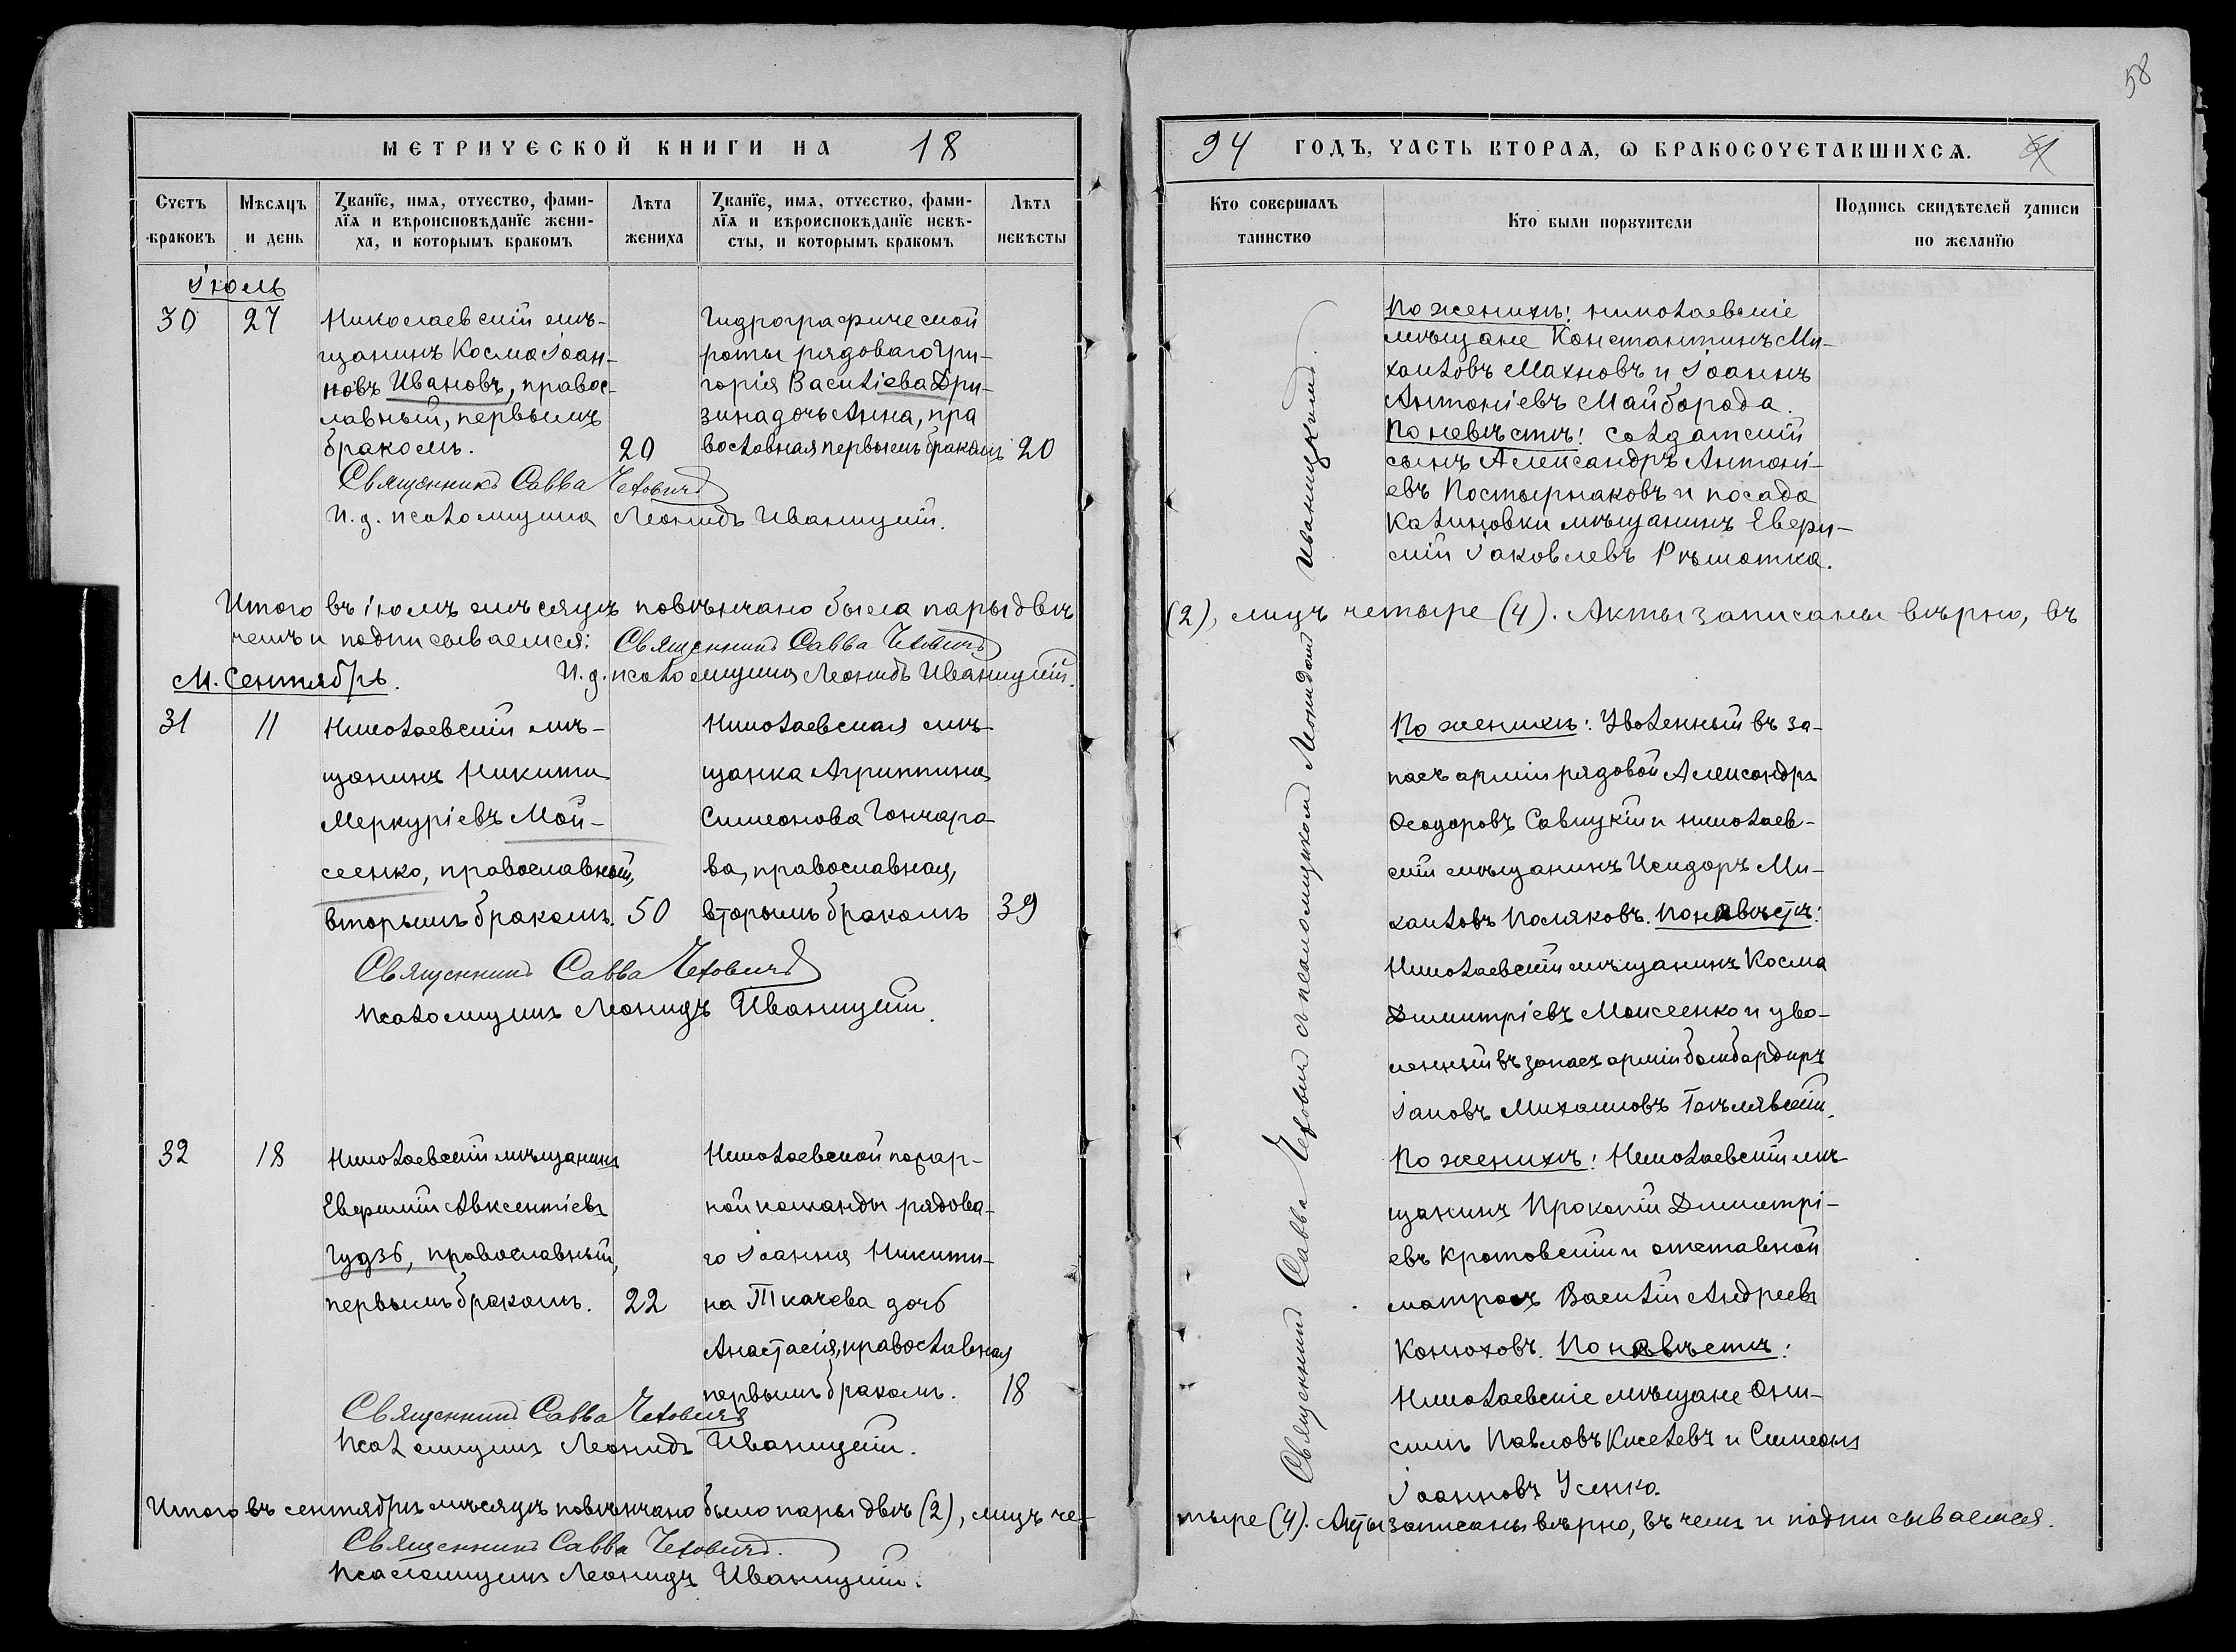 58
МЕТРИЧЕСКОЙ КНИГИ НА 18
94 ГОДЪ, ЧАСТЬ ВТОРАѦ, Ѡ БРАКОСОЧЕТАВШИХСѦ.
Счетъ браковъ
Мѣсѧцъ и день
Званїе, имѧ, отчество, фами-
лїѧ и вѣроисповѣданїе жени-
ха, и которымъ бракомъ
Лѣта жениха
Званїе, имѧ, отчество, фами-
лїѧ и вѣроисповѣданїе невѣ-
сты, и которымъ бракомъ
Лѣта невѣсты
Кто совершалъ таинство
Кто были порꙋчители
Подпись свидѣтелей записи по желанїю
Іюль
30
27
Николаевскій мѣ-
щанинъ Косма Іоан-
новъ Ивановъ, правос-
лавный, первымъ
бракомъ.
20
Гидрографической
роты рядоваго Гри-
горія Василіева Дри-
зина дочь Анна, пра
вославная первымъ бракомъ
20
Священникъ Савва Чехович
И. д. псаломщика Леонидъ Иваницкій.
По женихѣ: николаевскіе
мѣщане Константинъ Ми-
хаиловъ Махновъ и Іоаннъ
Антоніевъ Майборода.
По невѣстѣ: солдатскій
сынъ Александръ Антоні-
евъ Постырнаковъ и посада
Калиновки мѣщанинъ Евфи-
мій Іаковлевъ Рѣшотка.
Итого въ іюлѣ мѣсяцѣ повѣнчано была пары двѣ
(2), лицъ четыре (4). Акты записаны вѣрно, въ
чемъ и подписываемся: Священникъ Савва Чехович
И. д. псаломщика Леонидъ Иваницкій.
М. Сентябрь.
31
11
Николаевскій мѣ-
щанинъ Никита
Меркуріевъ Мой-
сеенко, православный,
вторымъ бракомъ.
50
Николаевская мѣ-
щанка Агриппина
Симеонова Гончаро-
ва, православная,
вторымъ бракомъ
39
Священникъ Савва Чехович
Псаломщикъ Леонидъ Иваницкій.
По женихѣ: Уволенный въ за-
пасъ арміи рядовой Александръ
Ѳеодоровъ Савицкій и николаев-
скій мѣщанинъ Исидоръ Ми-
хаиловъ Поляковъ. По невѣстѣ:
Николаевскій мѣщанинъ Косма
Димитріевъ Моисеенко и уво-
ленный въ запасъ арміи бомбардиръ
Іаковъ Михаиловъ
32
18
Николаевскій мѣщанинъ
Евфимій Авксентіевъ
Гудзь, православный,
первымъ бракомъ.
22
Николаевской пожар-
ной команды рядова-
го Іоанна Никити-
на Ткачева дочь
Анастасія, православная
первымъ бракомъ.
18
Священникъ Савва Чехович
Псаломщикъ Леонидъ Иваницкій.
По женихѣ: Николаевскій мѣ-
щанинъ Прокопій Димитрі-
евъ Кротовскій и отставной
матросъ Василій Андреевъ
Конюховъ. По невѣстѣ:
Николаевскіе мѣщане Они-
симъ Павловъ Киселевъ и Симеонъ
Іоанновъ Усенко.
Священникъ Савва Чехович съ псаломщикомъ Леонидомъ Иваницкимъ.
Итого въ сентябрѣ мѣсяцѣ повѣнчано было пары двѣ (2), лицъ че-
тыре (4). Акты записаны вѣрно, въ чемъ и подписываемся.
Священникъ Савва Чехович.
Псаломщикъ Леонидъ Иваницкій.